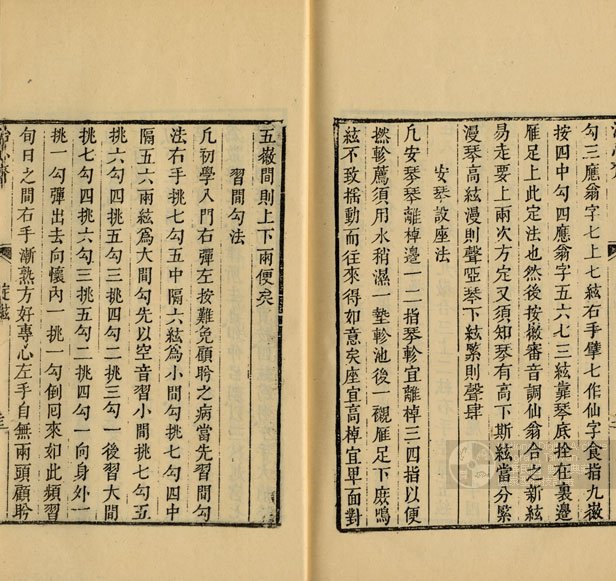 勾三應翁字七上七絃右手擘七作仙字食指九徽
按四中勾四應翁字五六七三絃靠琴底拴在裏邊
雁足上此定法也然後按徽審音調仙翁合之新絃
易走要上兩次方定又須知琴有高下斯絃當分緊
漫琴高絃漫則聲啞琴下絃緊則聲肆
安琴設座法
凡安琴琴離棹邊一二指琴軫宜離棹三四指以便
撚軫薦須用水稍濕一墊軫池後一襯雁足下庶鳴
絃不致摇動而往來得如意矣座宜高棹宜卑一面對
五徽間則上下兩便矣
習間勾法
凡初學入門右彈左按難免顧盻之病當先習間勾
法右手挑七勾五中隔六絃爲小間勾挑七勾四中
隔五六兩絃爲大間勾先以空音習小間挑七勾五
挑六勾四挑五勾三挑四勾二挑三勾一後習大間
挑七勾四挑六勾三挑五勾二挑四勾一向身外一
挑一勾彈出去向懷内一挑一勾倒回來如此頻習
旬日之間右手漸熟方好專心左手自無兩頭顧盻
定絃